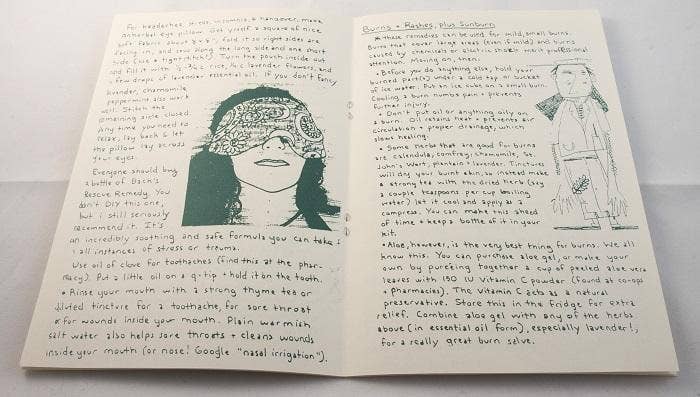 For headaches, stress, insomnia, & hangover, make
an herbal eye pillow. Get yrself a square of nice
soft fabric about 9 x 9, fold it so right sides are
facing in, and sew along the long side and one short
side (use a tight stitch!). Turn the pouch inside out
and fill it with rice, lavender flowers, and
a few drops of lavender essential oil. If you don't fancy
lavender, chamomile,
peppermint also work
well. Stitch the
remaining side closed.
Any time you need to
relax, lay back & let
the pillow lay across
your eyes.
Everyone should buy
a bottle of Bach's
Rescue Remedy. You
don't DIY this one,
but i still seriously
recommend it. It's
an incredibly soothing and safe formula you can take
in all instances of stress or trauma.
Use oil of clove for toothaches (find this at the phar-
macy). Put a little oil on a q-tip + hold it on the tooth.
• Rinse your mouth with a strong thyme tea or
diluted tincture for a toothache, for sore throat
or for wounds inside your mouth. Plain warmish
salt water also helps sore throats + cleans wounds
inside your mouth (or nose! Google "nasal irrigation").
Burns + Rashes, plus Sunburn
* these remedies can be used for mild, small burns.
Burns that cover large areas (even if mild) and burns
caused by chemicals or electric shock merit professional
attention. Moving on, then:
• Before you do anything else, hold your
burned part(s) under a cold tap or bucket
of ice water. Put an ice cube on a small burn.
Cooling a burn numbs pain + prevents
further injury.
• Don't put oil or anything oily on
a burn. Oil retains heat + prevents air
circulation + proper drainage, which
slows healing.
• Some herbs that are good for burns
are calendula, comfrey, chamomile, St.
John's Wort, plantain + lavender. Tinctures
will dry your burnt skin, so instead make
a strong tea with the dried herb (say
a couple teaspoons per cup boiling
water) let it cool and apply as a
compress. You can make this ahead
of time + keep a bottle of it in your
kit.
• Aloe, however, is the very best thing for burns. We all
know this. You can purchase aloe gel, or make your
own by pureeing together a cup of peeled aloe vera
leaves with 150 IU Vitamin C powder (found at co-ops
+ pharmacies). The Vitamin C acts as a natural
preservative. Store this in the fridge for extra
relief. Combine aloe gel with any of the herbs
above (in essential oil form), especially lavender!,
for a really great burn salve.